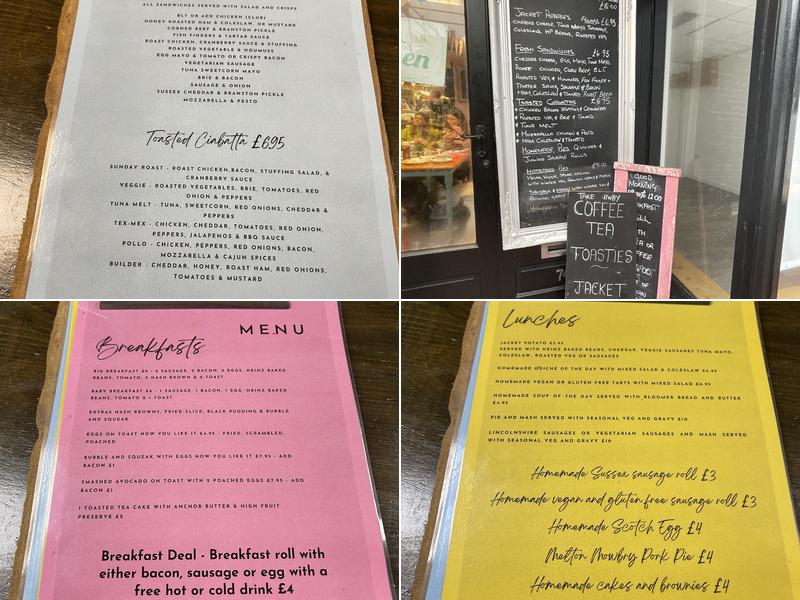 ALL SANDWICHES SERVED WITH SALAD AND CRISPS
BLT OR ADD CHICKEN (CLUB)
HONEY ROASTED HAM & COLESLAW, OR MUSTARD
CORNED BEEF & BRANSTON PICKLE
FISH FINGERS & TARTAR SAUCE
ROAST CHICKEN, CRANBERRY SAUCE & STUFFING
ROASTED VEGETABLE & HOUMUSS
EGG MAYO & TOMATO OR CRISPY BACON
VEGETARIAN SAUSAGE
TUNA SWEETCORN MAYO
BRIE & BACON
SAUSAGE & ONION
SUSSEX CHEDDAR & BRANSTON PICKLE
MOZZARELLA & PESTO
Toasted Ciabatta £695
SUNDAY ROAST - ROAST CHICKEN,BACON, STUFFING, SALAD, &
CRANBERRY SAUCE
VEGGIE - ROASTED VEGETABLES, BBIE, TOMATOES, RED
ONION & PEPPERS
TUNA MELT - TUNA, SWEETCORN, RED ONIONS, CHEDDAR &
PEPPERS
TEX-MEX - CHICKEN, CHEDDAR, TOMATOES, RED ONION,
PEPPERS, JALAPENOS & BBQ SAUCE
POLLO - CHICKEN, PEPPERS, RED ONIONS, BACON,
MOZZARELLA & CAJUN SPICES
BUILDER - CHEDDAR, HONEY, ROAST HAM, RED ONIONS,
TOMATOES & MUSTARD
£6.00
JACKET POTATOES £6.95
CHEDDAR CHEESE, TUNA MAYO
COLESLAW, HP BEANS, ROASTED VEG
FRESH SANDWICHES £6.95
CHEDDAR CHEESE, EGG MAYO, TUNA MAYO
ROAST CHICKEN, CORN BEEF, BLT
ROASTED VEG & HUMMUS, FISH FINGER &
TARTER SAUCE, SAUSAGE & BACON
HAM, COLESLAW & TOMATO, ROAST BEEF
TOASTED CIABATTAS £6.95
CHICKEN BACON STUFFING & CRANBERRY
ROASTED VEG & BRIE & TOMATO
TUNA MELT
MOZZARELLA CHICKEN & PESTO
HAM COLESLAW & TOMATO
HOMEMADE PIES QUICHES &
JUMBO SAUSAGE ROLLS
HOMEMADE PIES
en
GOOD
MORNING
12:00
TAKE AWAY
COFFEE
TEA
TOASTIES
JACKET
MENU
Breakfasts
BIG BREAKFAST £8 - 2 SAUSAGE, 2 BACON, 2 EGGS, HEINZ BAKED
BEANS, TOMATO, 2 HASH BROWN & 2 TOAST
BABY BREAKFAST £6 - 1 SAUSAGE, 1 BACON, 1 EGG, HEINZ BAKED
BEANS, TOMATO & 1 TOAST
EXTRAS HASH BROWNS, FRIED SLICE, BLACK PUDDING & BUBBLE
AND SQUEAK
EGGS ON TOAST HOW YOU LIKE IT £4.95 - FRIED, SCRAMBLED,
POACHED
BUBBLE AND SQUEAK WITH EGGS HOW YOU LIKE IT £7.95 - ADD
BACON £1
SMASHED AVOCADO ON TOAST WITH 2 POACHED EGGS £7.95 - ADD
BACON £1
1 TOASTED TEA CAKE WITH ANCHOR BUTTER & HIGH FRUIT
PRESERVE £2
Breakfast Deal - Breakfast roll with
either bacon, sausage or egg with a
free hot or cold drink £4
Lunches
JACKET POTATO £7.95
SERVED WITH HEINZ BAKED BEANS, CHEDDAR, VEGGIE SAUSAGES TUNA MAYO,
COLESLAW, ROASTED VEG OR SAUSAGES
HOMEMADE QUICHE OF THE DAY WITH MIXED SALAD & COLESLAW £6.95
HOMEMADE VEGAN OR GLUTEN FREE TARTS WITH MIXED SALAD £6.95
HOMEMADE SOUP OF THE DAY SERVED WITH BLOOMER BREAD AND BUTTER
£4.95
PIE AND MASH SERVED WITH SEASONAL VEG AND GRAVY £10
LINCOLNSHIRE SAUSAGES OR VEGETARIAN SAUSAGES AND MASH SERVED
WITH SEASONAL VEG AND GRAVY £10
Homemade Sussex sausage roll £3
Homemade vegan and gluten free sausage roll £3
Homemade Scotch Egg £4
Melton Mowbry Pork Pie £4
Homemade cakes and brownies £4